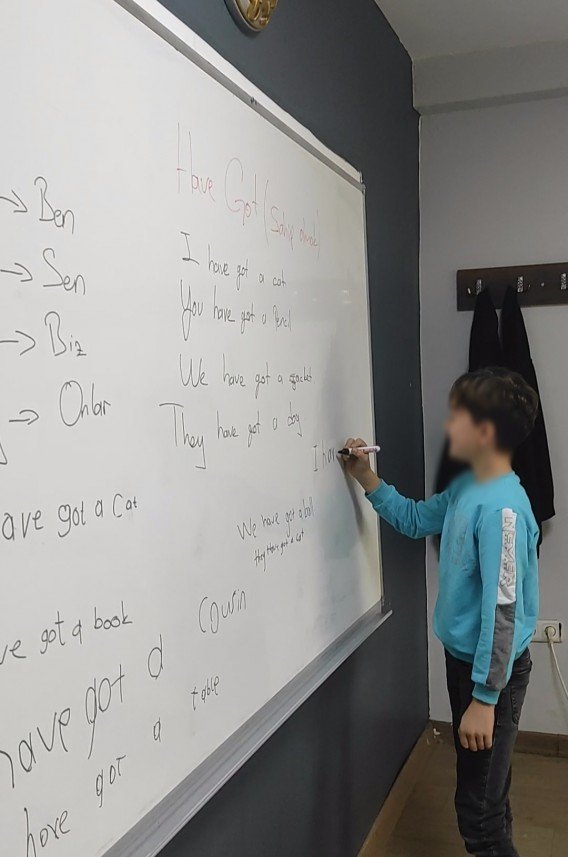 → Ben
→ Sen
→ Biz
→ Onlar
Have Got (Sahip olmak)
I have got a cat
You have got a Pencil
We have got a
They have got a dog
I hav
ave got a cat
We have got a ball
they have got a cat
ve got a book
cousin
have got a
have got a table